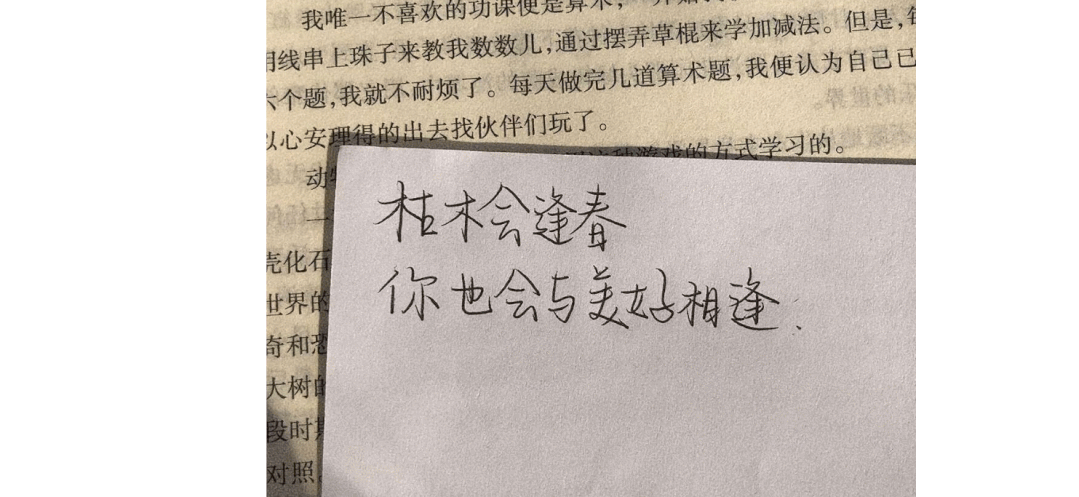 我唯一不喜欢的功课便是算术,
用线串上珠子来教我数数儿,通过摆弄草棍来学加减法。但是,每
六个题,我就不耐烦了。每天做完几道算术题,我便认为自己已
以心安理得的出去找伙伴们玩了。
游戏的方式学习的。
动
一
壳化石
世界的
奇和恐
大树的
段时期
对照。
枯木会逢春
你也会与美好相逢.